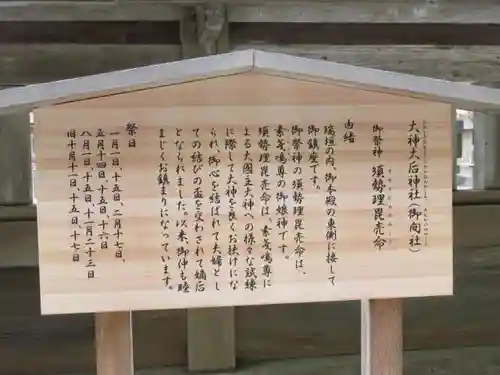 大神大后神社(御向社)
御祭神 須勢理毘売命
由緒
瑞垣の内、御本殿の東側に接して
御鎮座です。
御祭神の須勢理毘売命は、
素戔嗚尊の御娘神です。
須勢理毘売命は、素戔嗚尊に
よる大国主大神への様々な試練
に際して大神を良くお扶けにな
られ、御心を結ばれて夫婦とし
ての結びの盃を交わされて嫡后
となられました。以来、御仲も睦
まじくお鎮まりになっています。
祭日
一月一日、十五日、二月十七日、
五月十四日、十五日、十六日
八月一日、十五日、十一月二十三日
旧十月十一日、十五日、十七日